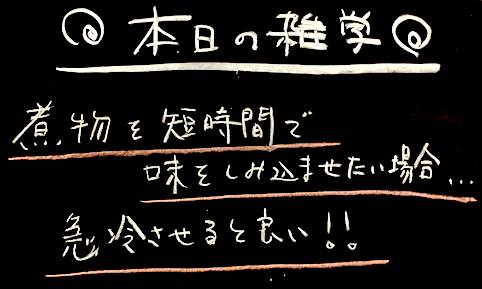 本日の雑学
煮物を短時間で
味をしみ込ませたい場合...
急冷させると良い!!